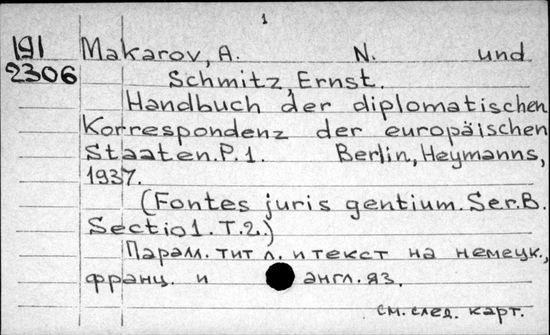 1
191 Makarov, A. N. und
2306 Schmitz, Ernst.
Handbuch der diplomatischen
Korrespondenz der europäischen
Staaten. P. 1. Berlin, Heymanns,
1937.
(Fontes juris gentium. Ser. B.
Sectio 1. T. 2.)
Парал. тит л. и текст на немецк.,
франц. и англ. яз.
см. след. карт.